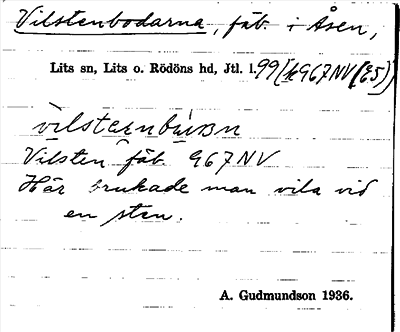 Vilstenbodarna, fäb. i Åsen,
Lits sn, Lits o. Rödöns hd, Jtl. l. 99 (k967NV(E5))
vilstenbùɐn
Vilsten fäb. 967NV
Här brukade man vila vid
en sten.
A. Gudmundson 1936.